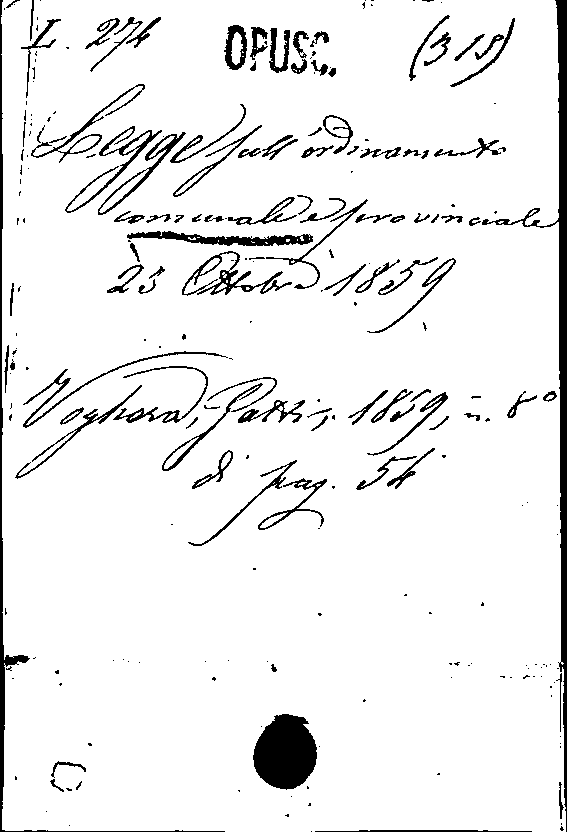 L. 274 OPUSC. (315)
Legge sull'ordinamento
comunale e provinciale
23 Ottobre 1859
Voghera, Gatti, 1859, in 8°
di pag. 54